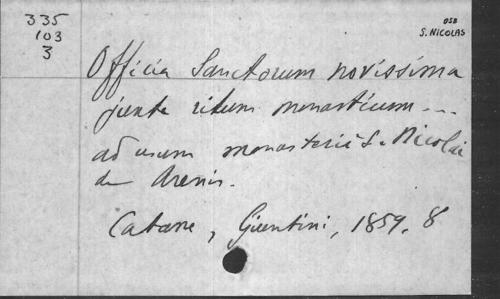 335
103
3
OSB
S. NICOLAS
Officia Sanctorum novissima
juxta ritum monasticum ...
ad usum monasterii S. Nicolai
de Arenis.
Catane, Giuntini, 1859. 8